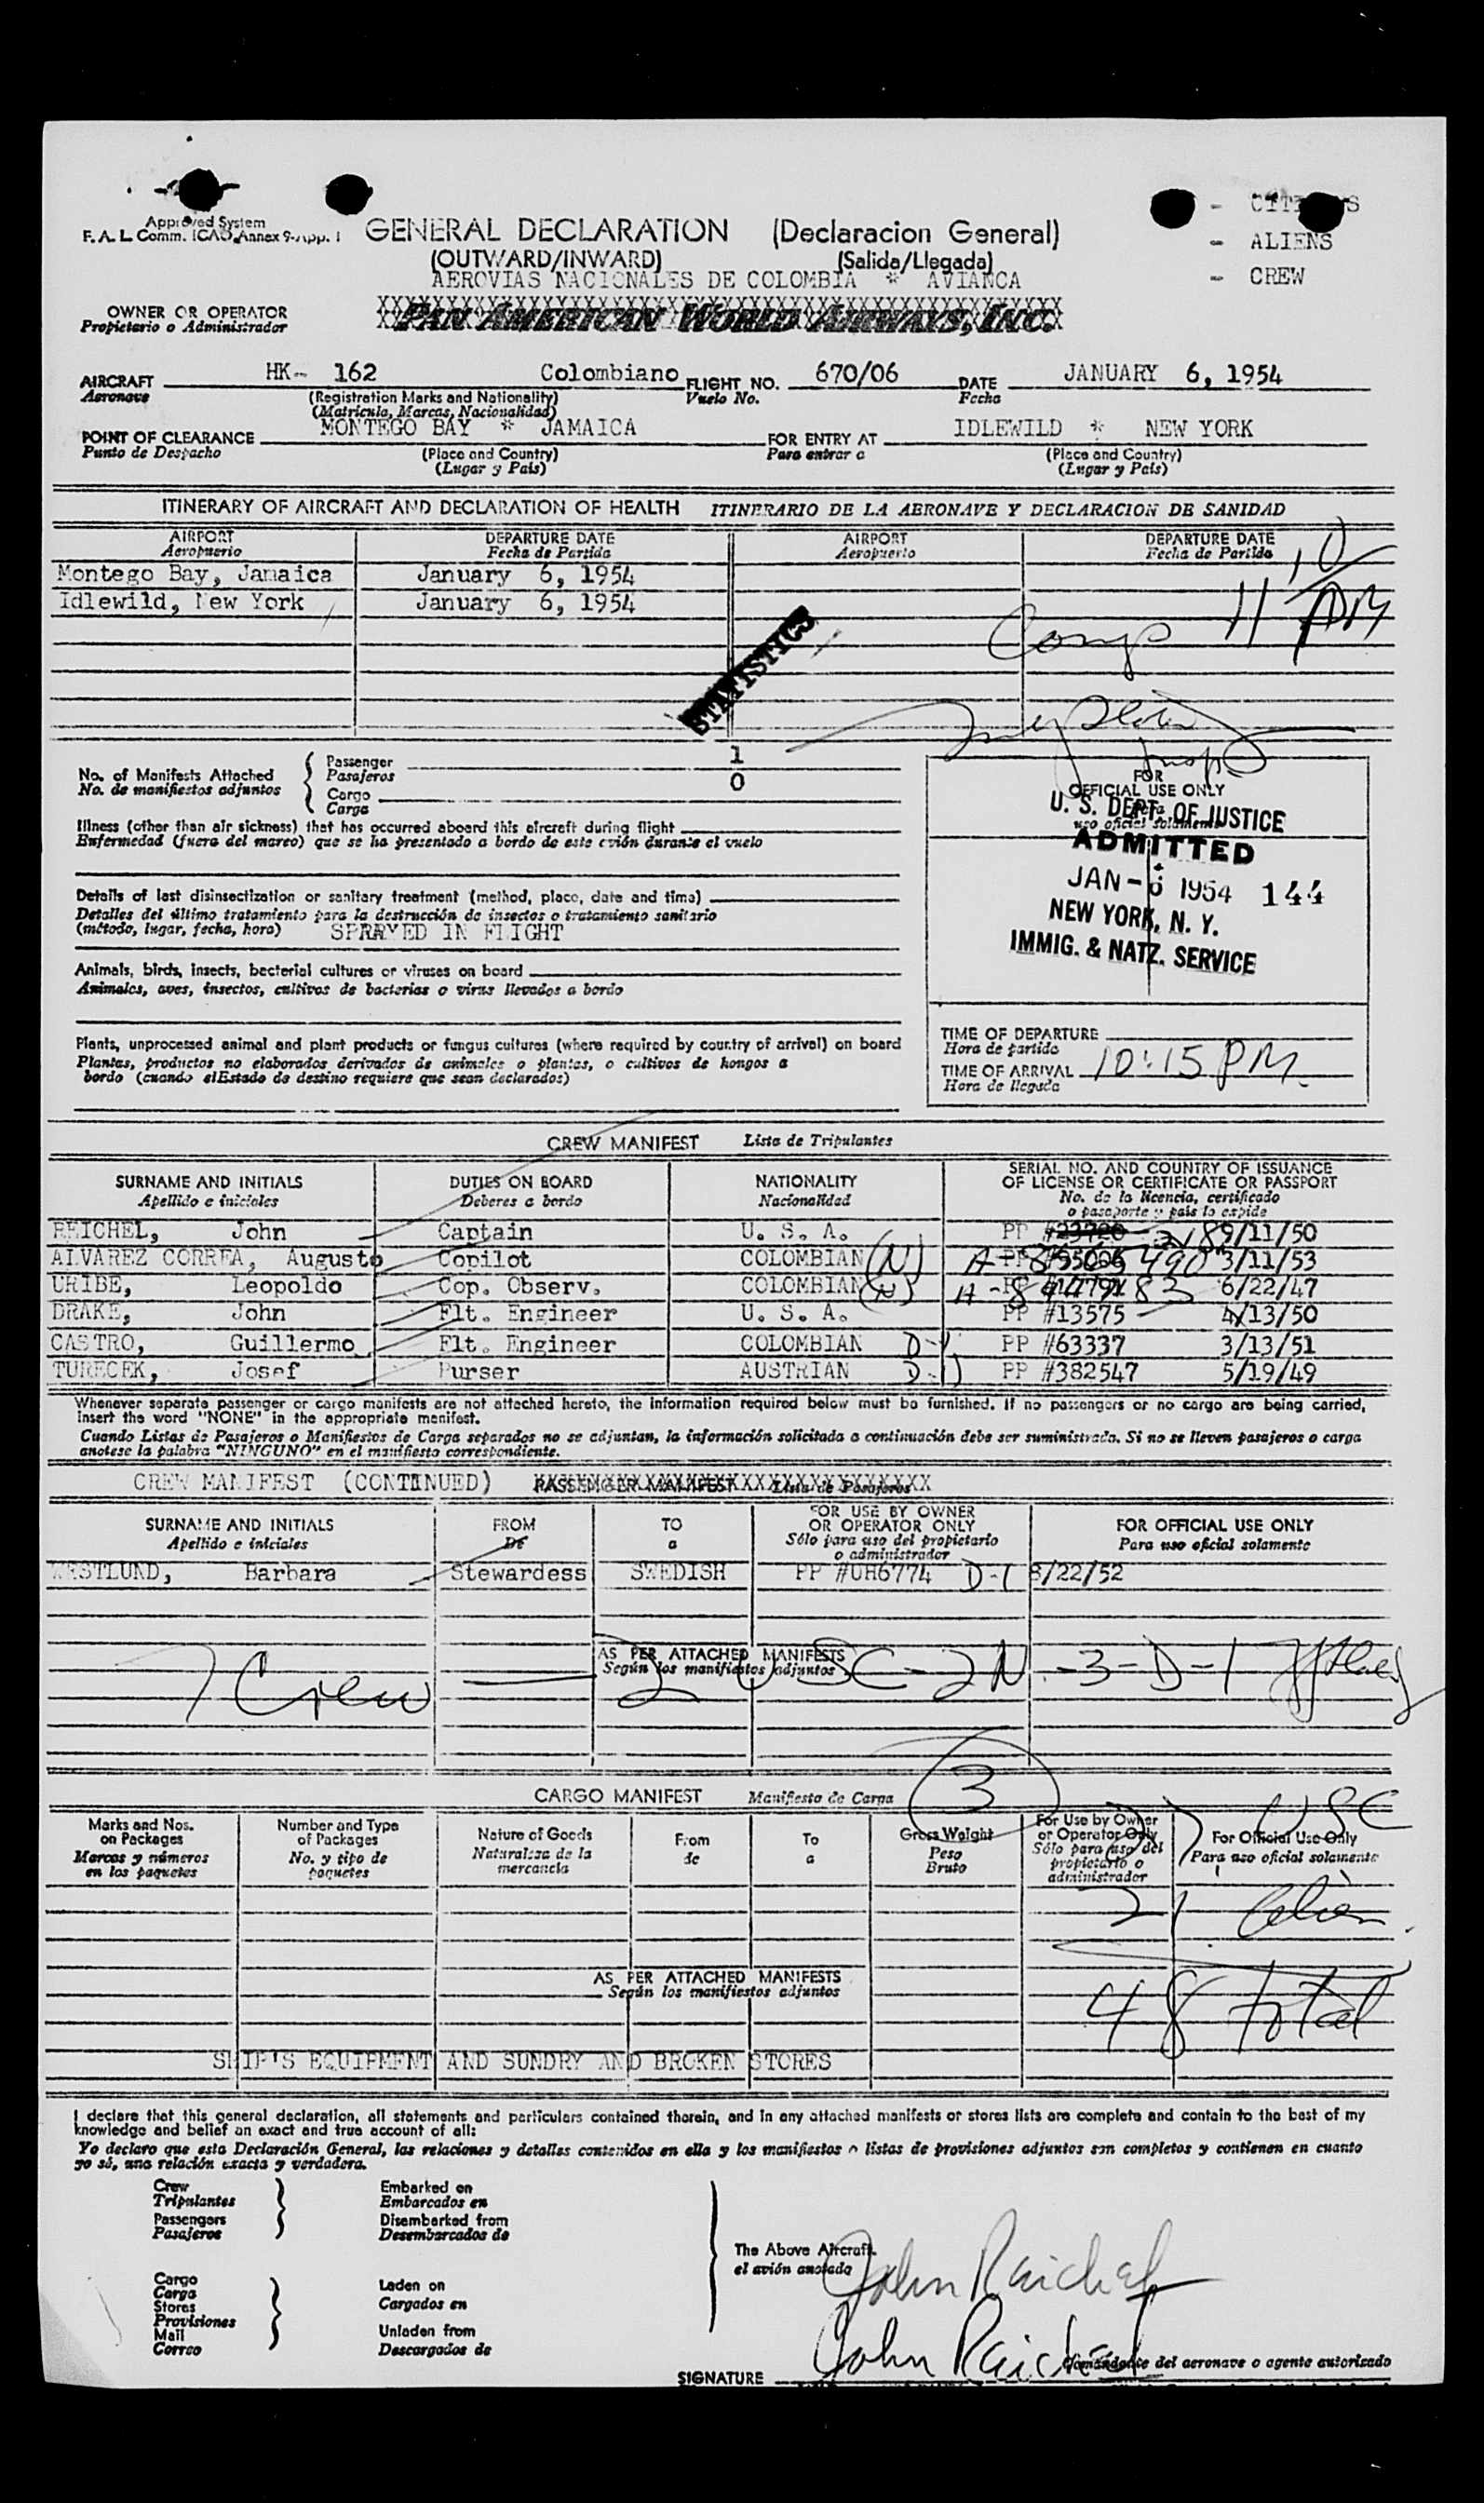 - CITI S
- ALIENS
- CREW
Approved System
F. A. L. Comm. ICAO Annex 9-App. 1
GENERAL DECLARATION (Declaracion General)
(OUTWARD/INWARD) (Salida/Llegada)
AEROVIAS NACIONALES DE COLOMBIA * AVIANCA
OWNER OR OPERATOR
Propietario o Administrador
PAN AMERICAN WORLD AIRWAYS, INC.
AIRCRAFT HK- 162 Colombiano FLIGHT NO. 670/06 DATE JANUARY 6, 1954
Aeronave (Registration Marks and Nationality) Vuelo No. Fecha
(Matricula, Marcas, Nacionalidad)
POINT OF CLEARANCE MONTEGO BAY * JAMAICA FOR ENTRY AT IDLEWILD * NEW YORK
Punto de Despacho (Place and Country) Para entrar a (Place and Country)
(Lugar y País) (Lugar y País)
ITINERARY OF AIRCRAFT AND DECLARATION OF HEALTH ITINERARIO DE LA AERONAVE Y DECLARACION DE SANIDAD
AIRPORT DEPARTURE DATE AIRPORT DEPARTURE DATE
Aeropuerto Fecha de Partida Aeropuerto Fecha de Partida
Montego Bay, Jamaica January 6, 1954
Idlewild, New York January 6, 1954
11 10 PM
STATISTICS
No. of Manifests Attached
No. de manifiestos adjuntos
Passenger 1
Pasajeros
Cargo 0
Carga
Illness (other than air sickness) that has occurred aboard this aircraft during flight
Enfermedad (fuera del mareo) que se ha presentado a bordo de este avión durante el vuelo
Details of last disinsectization or sanitary treatment (method, place, date and time)
Detalles del último tratamiento para la destrucción de insectos o tratamiento sanitario
(método, lugar, fecha, hora) SPRAYED IN FLIGHT
Animals, birds, insects, bacterial cultures or viruses on board
Animales, aves, insectos, cultivos de bacterias o virus llevados a bordo
Plants, unprocessed animal and plant products or fungus cultures (where required by country of arrival) on board
Plantas, productos no elaborados derivados de animales o plantas, o cultivos de hongos a
bordo (cuando el Estado de destino requiere que sean declarados)
Insp
FOR
OFFICIAL USE ONLY
Para
uso oficial solamente
U. S. DEPT. OF JUSTICE
ADMITTED
JAN - 6 1954 144
NEW YORK, N. Y.
IMMIG. & NATZ. SERVICE
TIME OF DEPARTURE
Hora de partida
TIME OF ARRIVAL 10:15 PM
Hora de llegada
CREW MANIFEST Lista de Tripulantes
SURNAME AND INITIALS DUTIES ON BOARD NATIONALITY SERIAL NO. AND COUNTRY OF ISSUANCE
OF LICENSE OR CERTIFICATE OR PASSPORT
Apellido e iniciales Deberes a bordo Nacionalidad No. de la licencia, certificado
o pasaporte y país lo expide
REICHEL, John Captain U. S. A. PP #23720 9/11/50
ALVAREZ CORREA, Augusto Copilot COLOMBIAN (N) 3/11/53
URIBE, Leopoldo Cop. Observ. COLOMBIAN (N) 6/22/47
DRAKE, John Flt. Engineer U. S. A. PP #13575 4/13/50
CASTRO, Guillermo Flt. Engineer COLOMBIAN D-1 PP #63337 3/13/51
TURECEK, Josef Purser AUSTRIAN D-1 PP #382547 5/19/49
Whenever separate passenger or cargo manifests are not attached hereto, the information required below must be furnished. If no passengers or no cargo are being carried,
insert the word "NONE" in the appropriate manifest.
Cuando Listas de Pasajeros o Manifiestos de Carga separados no se adjuntan, la información solicitada a continuación debe ser suministrada. Si no se lleven pasajeros o carga
anotese la palabra "NINGUNO" en el manifiesto correspondiente.
CREW MANIFEST (CONTINUED) PASSENGER MANIFEST Lista de Pasajeros
SURNAME AND INITIALS FROM TO FOR USE BY OWNER
OR OPERATOR ONLY FOR OFFICIAL USE ONLY
Apellido e iniciales De a Sólo para uso del propietario
o administrador Para uso oficial solamente
WESTLUND, Barbara Stewardess SWEDISH PP #UH6774 D-1 8/22/52
AS PER ATTACHED MANIFESTS
Según los manifiestos adjuntos
7 Crew — 2 USC - 2 N - 3 - D-1
3
CARGO MANIFEST Manifiesto de Carga
27 USC
Marks and Nos.
on Packages
Marcas y números
en los paquetes
Number and Type
of Packages
No. y tipo de
paquetes
Nature of Goods
Naturaleza de la
mercancía
From
de
To
a
Gross Weight
Peso
Bruto
For Use by Owner
or Operator Only
Sólo para uso del
propietario o
administrador
For Official Use Only
Para uso oficial solamente
21 Alien
AS PER ATTACHED MANIFESTS
Según los manifiestos adjuntos
48 total
SHIP'S EQUIPMENT AND SUNDRY AND BROKEN STORES
I declare that this general declaration, all statements and particulars contained therein, and in any attached manifests or stores lists are complete and contain to the best of my
knowledge and belief an exact and true account of all:
Yo declaro que esta Declaración General, las relaciones y detalles contenidos en ella y los manifiestos o listas de provisiones adjuntos son completos y contienen en cuanto
yo sé, una relación exacta y verdadera.
Crew Embarked on
Tripulantes Embarcados en
Passengers Disembarked from
Pasajeros Desembarcados de
The Above Aircraft
el avión anotado
John Raichel
Cargo
Carga
Stores
Provisiones
Mail
Correo
Laden on
Cargados en
Unladen from
Descargados de
SIGNATURE John Raichel
Comandante del aeronave o agente autorizado